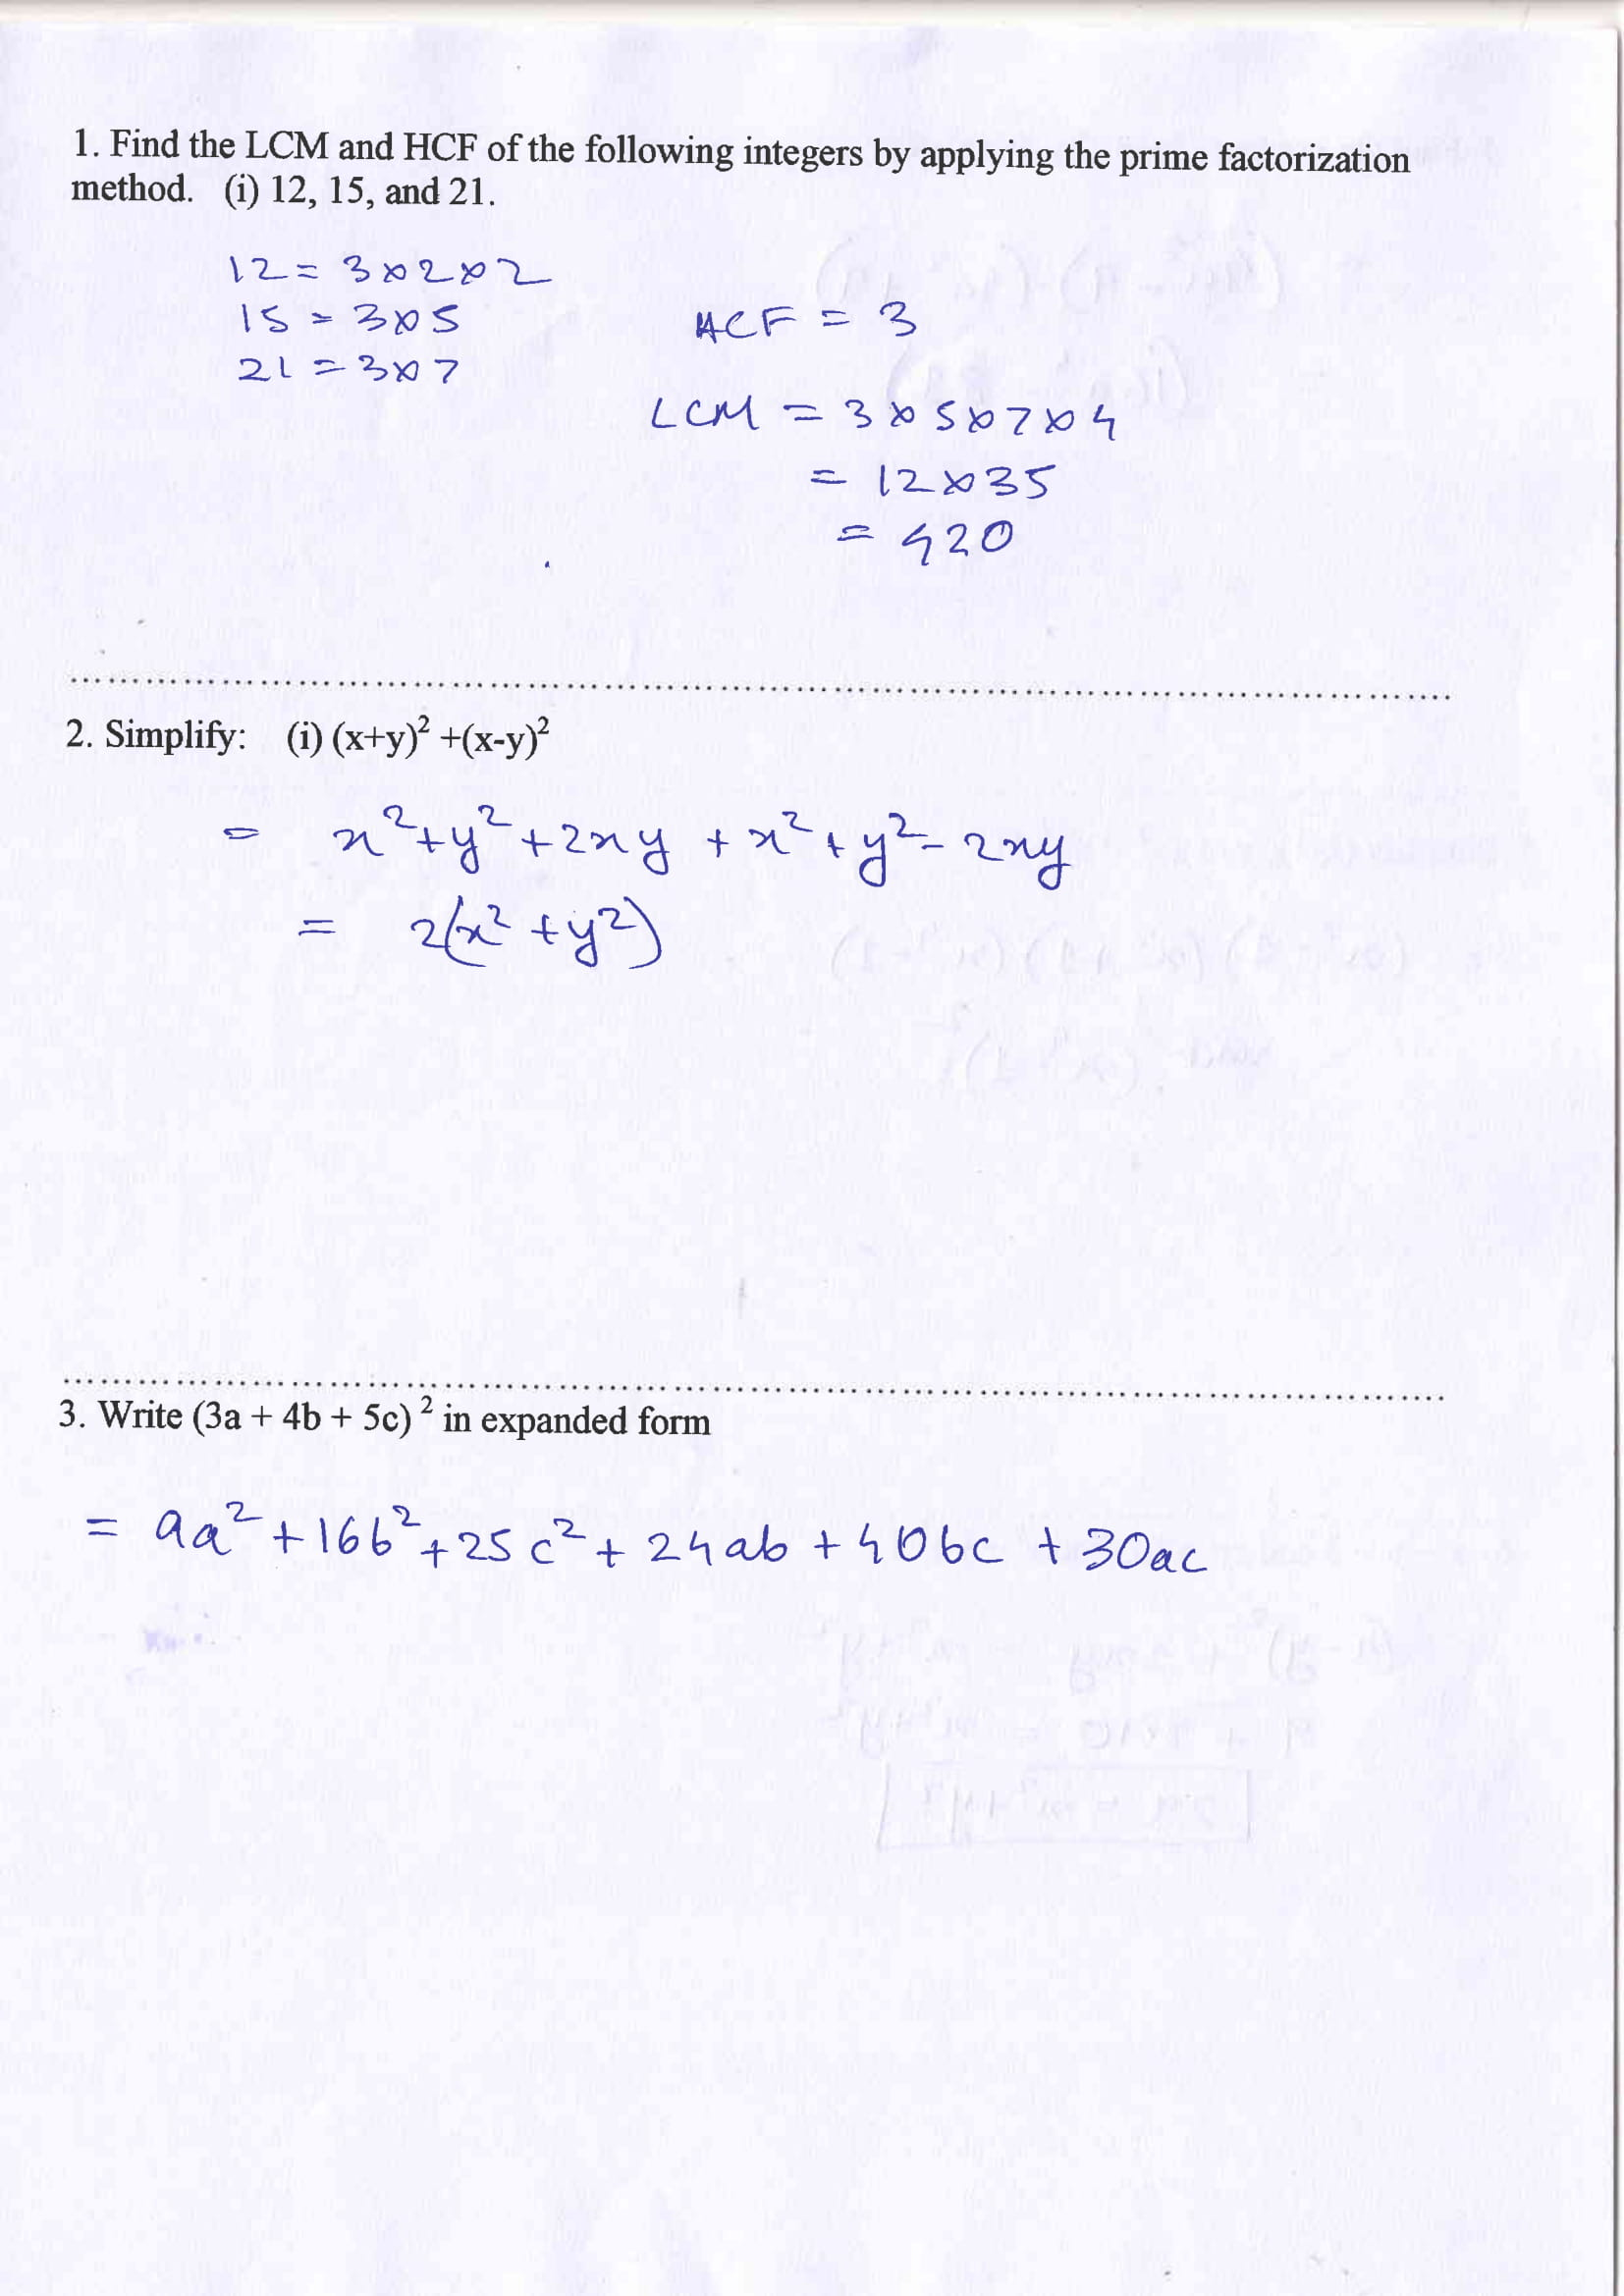 1. Find the LCM and HCF of the following integers by applying the prime factorization
method. (i) 12, 15, and 21.
12 = 3 × 2 × 2
15 = 3 × 5
21 = 3 × 7
HCF = 3
LCM = 3 × 5 × 7 × 4
= 12 × 35
= 420
2. Simplify: (i) (x+y)² +(x-y)²
= x² + y² + 2xy + x² + y² - 2xy
= 2(x² + y²)
3. Write (3a + 4b + 5c) ² in expanded form
= 9a² + 16b² + 25c² + 24ab + 40bc + 30ac